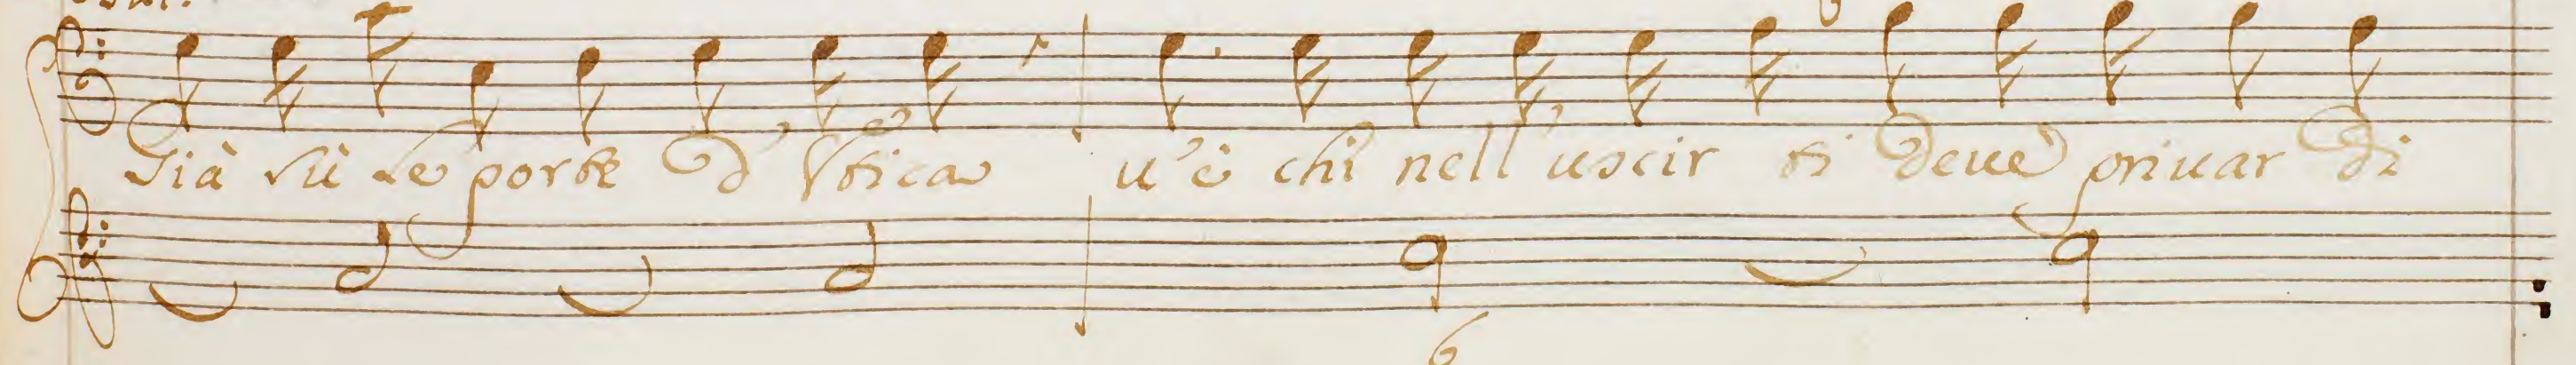 Già sù le porte d'Vtica u'è chi nell'uscir ti deue priuar di
6